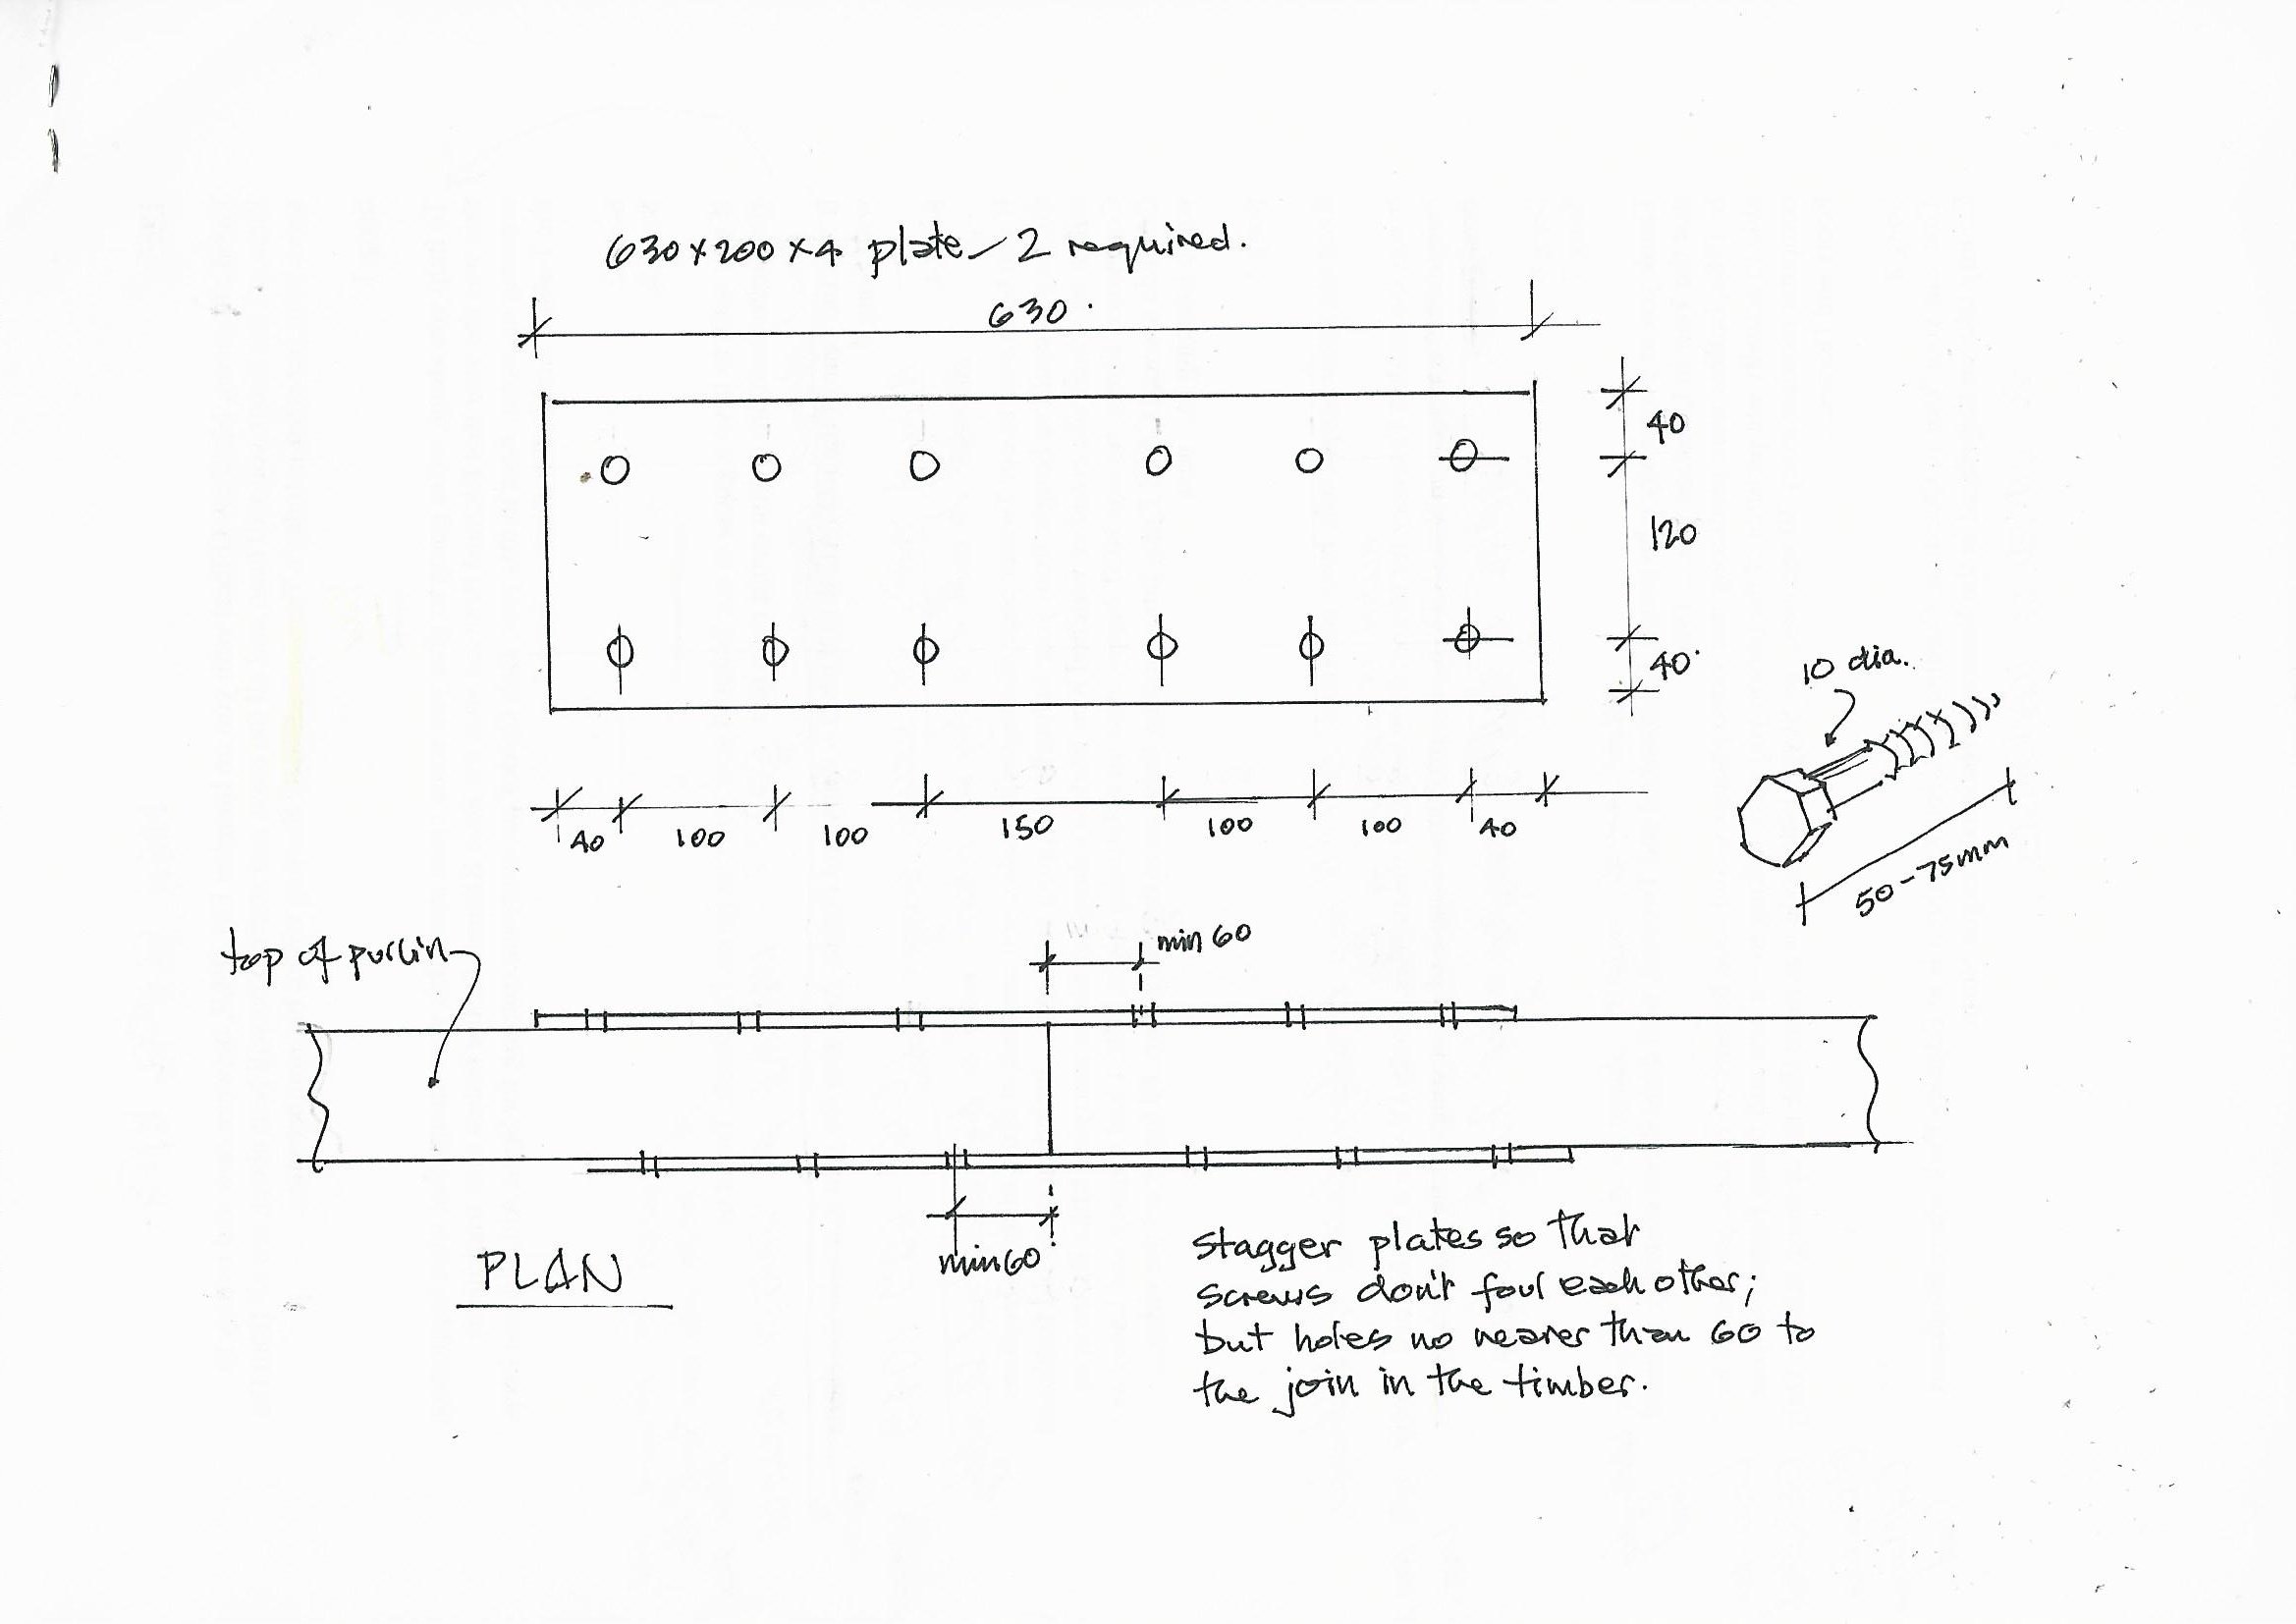 630x200x4 plate - 2 required.
630.
40
120
40.
10 dia.
50-75mm
40 100 100 150 100 100 40
top of purlin
min 60
min 60
PLAN
Stagger plates so that
screws don't foul each other;
but holes no nearer than 60 to
the join in the timber.